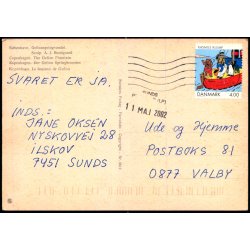 København. Gefionspringvandet.
Sculp. A. J. Bundgaard
Copenhagen. The Gefion Fountain
Kopenhagen. Der Gefion Springbrunnen
Copenhague. La fontaine de Gefion
SVARET ER JA.
INDS.:
JANE OKSEN
NYSKOVVEJ 28
ILSKOV
7451 SUNDS
11 MAJ 2002
DANMARK 4.00
Ude og Hjemme
POSTBOKS 81
0877 VALBY